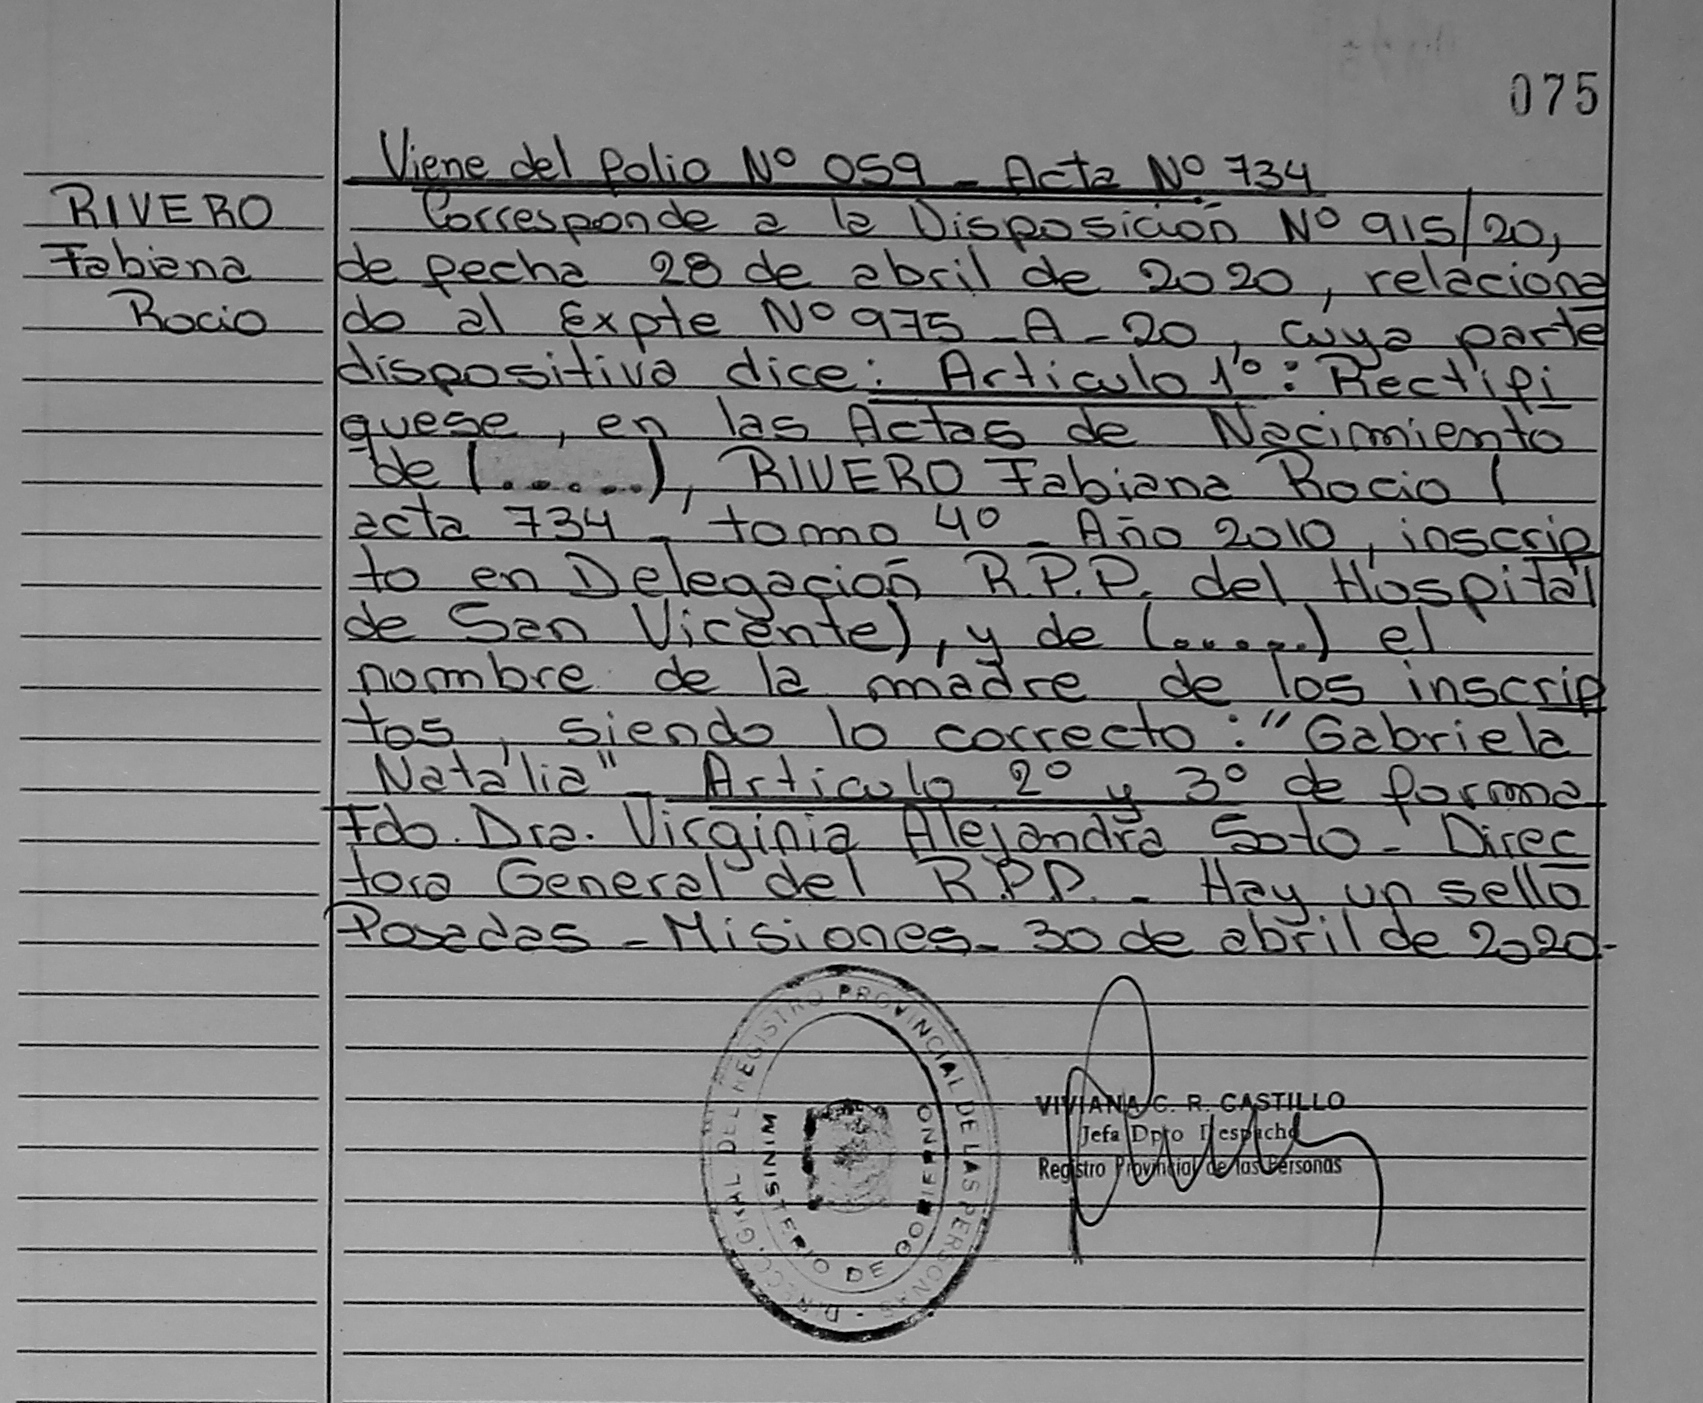 075
Viene del folio Nº 059 - Acta Nº 734
RIVERO
Fabiana
Rocio
Corresponde a la Disposición Nº 915/20,
de fecha 28 de abril de 2020, relaciona
do al Expte Nº 975 - A - 20, cuya parte
dispositiva dice: Articulo 1º: Rectifi
quese, en las Actas de Nacimiento
de (.....), RIVERO Fabiana Rocio (
acta 734 - tomo 4º - Año 2010, inscrip
to en Delegación R.P.P. del Hospital
de San Vicente), y de (.....) el
nombre de la madre de los inscrip
tos, siendo lo correcto: "Gabriela
Natalia" - Articulo 2º y 3º de forma
Fdo. Dra. Virginia Alejandra Soto - Direc
tora General del R.P.P. - Hay un sello
Posadas - Misiones - 30 de abril de 2020.-
DIRECC. GRAL DEL REGISTRO PROVINCIAL DE LAS PERSONAS -
MINISTERIO DE GOBIERNO
VIVIANA C. R. CASTILLO
Jefa Dpto Despacho
Registro Provincial de las Personas